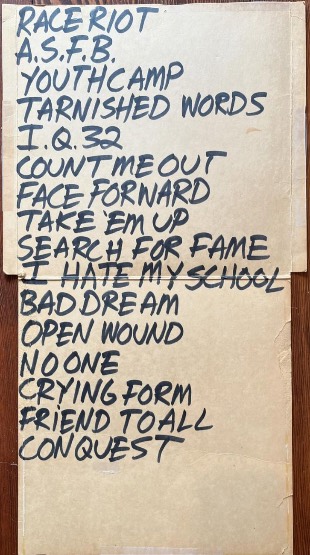 RACE RIOT
A.S.F.B.
YOUTH CAMP
TARNISHED WORDS
I.Q. 32
COUNT ME OUT
FACE FORWARD
TAKE 'EM UP
SEARCH FOR FAME
I HATE MY SCHOOL
BAD DREAM
OPEN WOUND
NO ONE
CRYING FORM
FRIEND TO ALL
CONQUEST